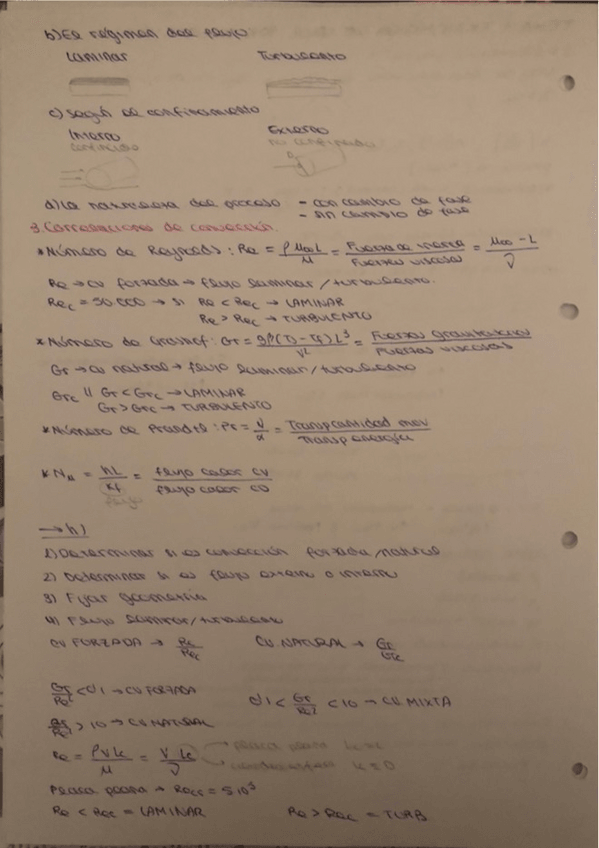 b) El régimen del flujo
Laminar Turbulento
c) Según el confinamiento
Interno Externo
confinado no confinado
d) La naturaleza del proceso - con cambio de fase
- sin cambio de fase
3. Correlaciones de convección.
* Número de Reynolds: Re = ρ μ∞ L / μ = Fuerza de inercia / Fuerzas viscosas = μ∞ - L / ν
Re → cv forzada → flujo laminar / turbulento.
Rec = 50.000 → si Re < Rec → LAMINAR
Re > Rec → TURBULENTO
* Número de Grashof: Gr = gβ(Ts - Tf) L³ / νL = Fuerzas gravitatorias / Fuerzas viscosas
Gr → cv natural → flujo laminar / turbulento
Grc || Gr < Grc → LAMINAR
Gr > Grc → TURBULENTO
* Número de Prandtl: Pr = ν / α = Transp cantidad mov / Transp energía
* Nu = hL / Kf = flujo calor CV / flujo calor CD
→ h)
1) Determinar si es convección forzada / natural
2) Determinar si es flujo externo o interno
3) Fijar geometría
4) Flujo laminar / turbulento
CV FORZADA → Re / Rec CV NATURAL → Gr / Grc
Gr / Re² < 0'1 → CV FORZADA 0'1 < Gr / Re² < 10 → CV MIXTA
Gr / Re² > 10 → CV NATURAL
Re = ρ V Lc / μ = V Lc / ν placa plana Lc = x
Lc = D
Placa plana → Recr = 5 10⁵
Re < Rec = LAMINAR Re > Rec = TURB